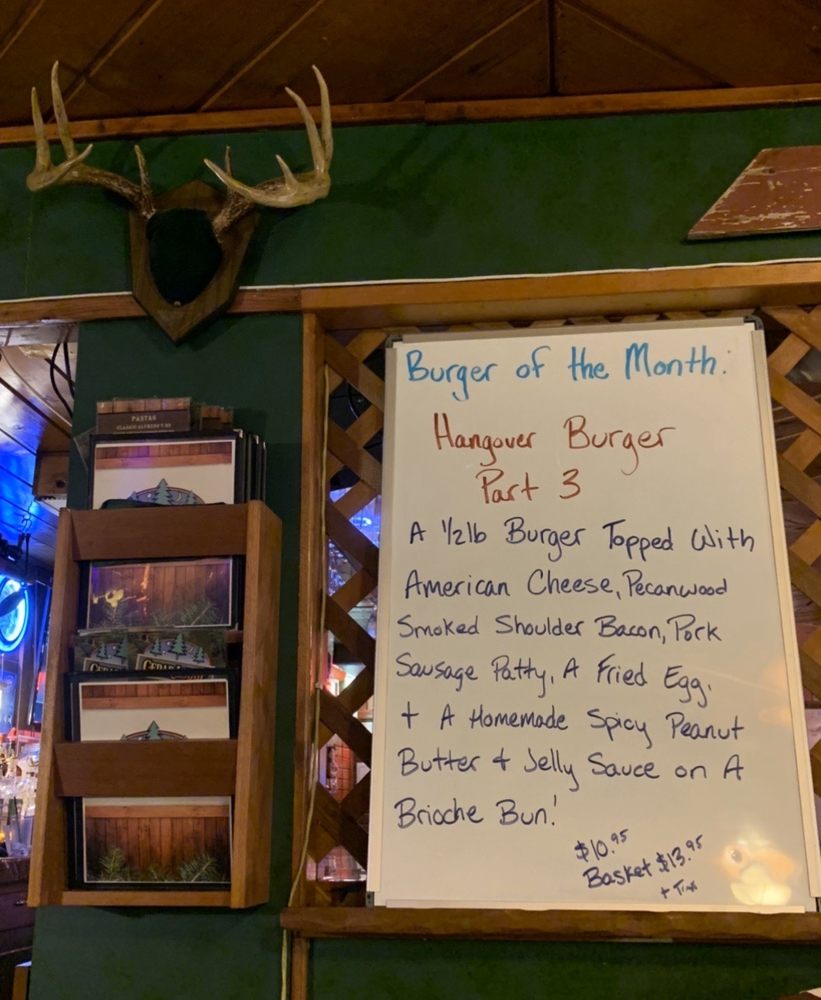 Burger of the Month:
Hangover Burger
Part 3
A 1/2lb Burger Topped With
American Cheese, Pecanwood
Smoked Shoulder Bacon, Pork
Sausage Patty, A Fried Egg,
+ A Homemade Spicy Peanut
Butter + Jelly Sauce on A
Brioche Bun!
$10.95
Basket $13.95
PASTAS